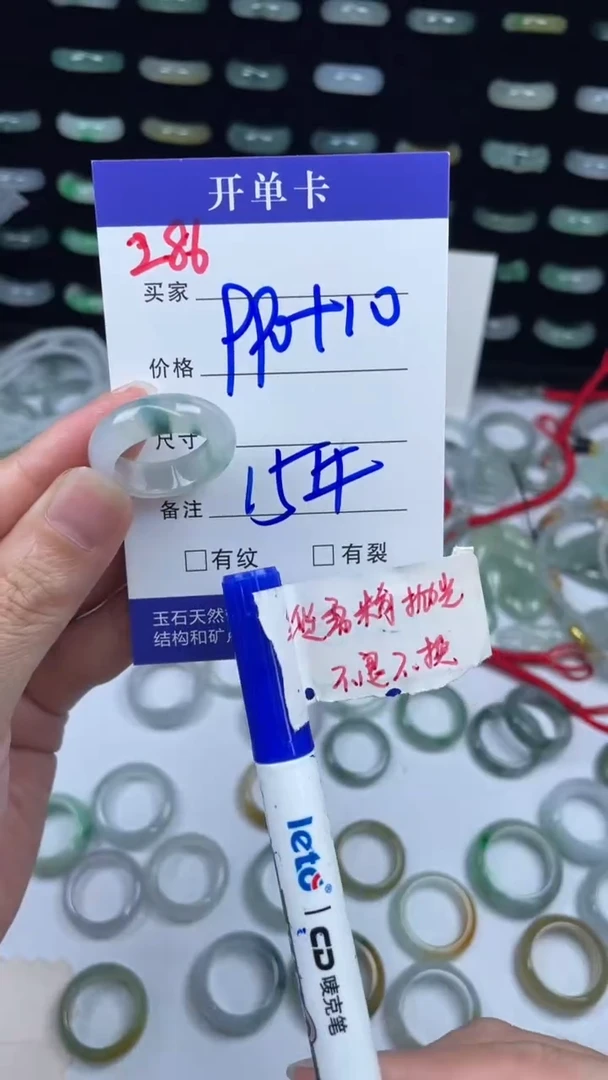 开单卡
286
买家
PPo+10
价格
尺寸
15年
备注
□有纹 □有裂
玉石天然
结构和矿
需精抛光
不退不换
leto® CD 唛克笔